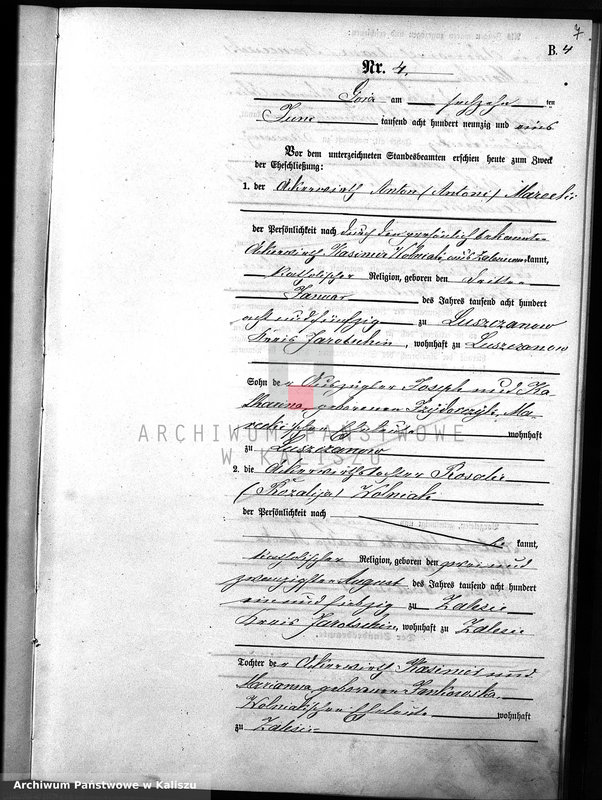 7
B. 4
Nr. 4.
Góra am sechzehn ten
Juni tausend acht hundert neunzig und eins
Vor dem unterzeichneten Standesbeamten erschien heute zum Zweck
der Eheschließung:
1. der Ackerwirth Anton (Antoni) Marecki
der Persönlichkeit nach durch den persönlich bekannten
Ackerwirth Kasimir Wolniak aus Zalesie kannt,
katholischer Religion, geboren den dritten
Januar des Jahres tausend acht hundert
acht und fünfzig zu Luszczanow
Kreis Jarotschin, wohnhaft zu Luszczanow
Sohn der Auszügler Joseph und Ka-
tharina, geborenen Ma-
reckischen Eheleute wohnhaft
zu Luszczanow
2. die Ackerwirthstochter Rosalie
(Rozalija) Wolniak
der Persönlichkeit nach
be kannt,
katholischer Religion, geboren den zwei und
zwanzigsten August des Jahres tausend acht hundert
ein und siebzig zu Zalesie
Kreis Jarotschin, wohnhaft zu Zalesie
Tochter der Ackerwirth Kasimir und
Marianna geborenen Jankowska
Wolniakschen Eheleute wohnhaft
zu Zalesie
ARCHIWUM PAŃSTWOWE
W KALISZU
Archiwum Państwowe w Kaliszu